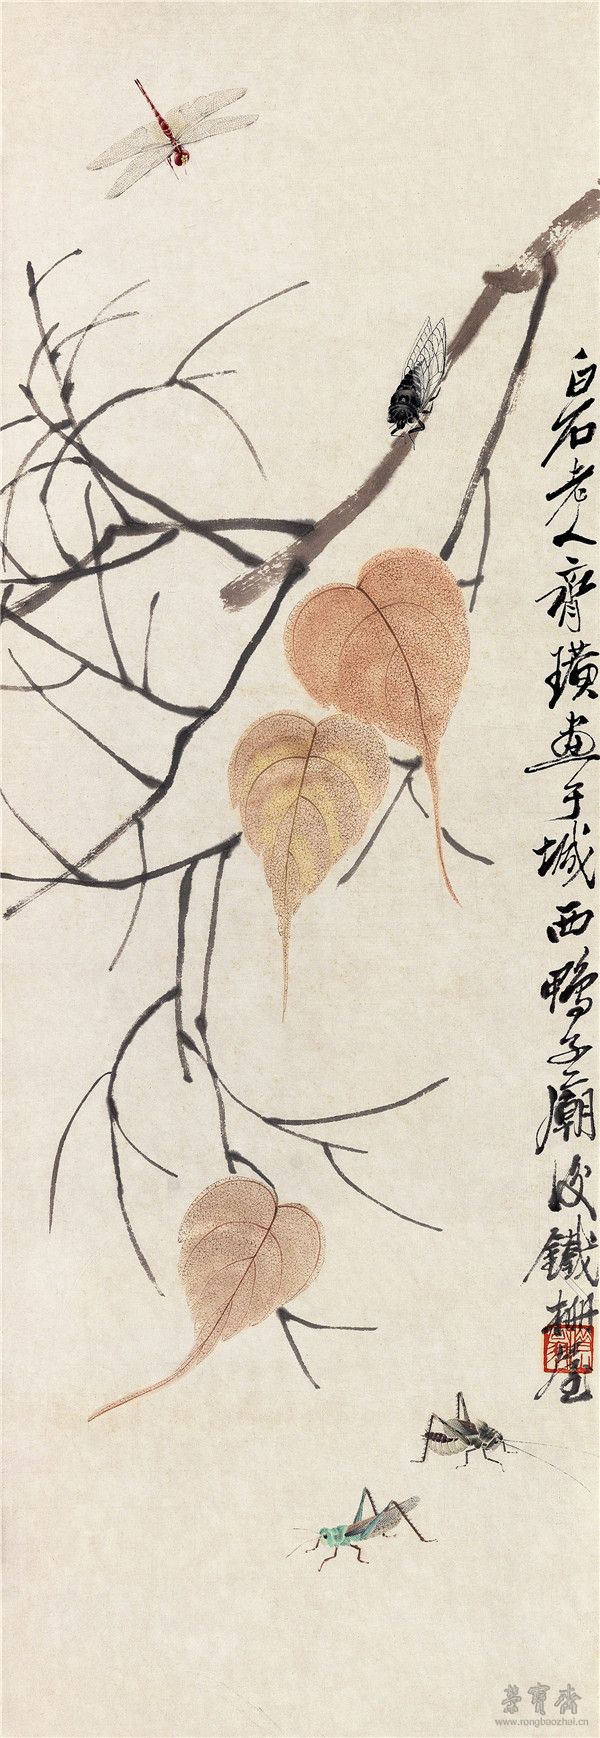 白石老人齊璜畫于城西鴨子廟後鐵柵屋
榮寶齋
www.rongbaozhai.cn